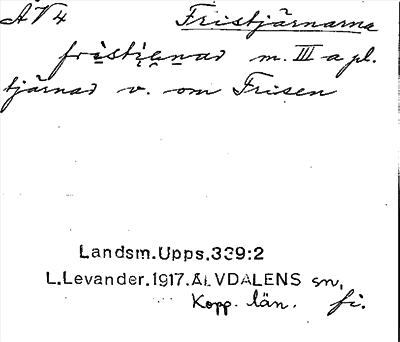 ÄV4 Fristjärnarna
fristjęnað m. III a pl.
tjärnað v. om Frisen
Landsm.Upps.339:2
L.Levander.1917.ÄLVDALENS sn,
Kopp. län. fi.